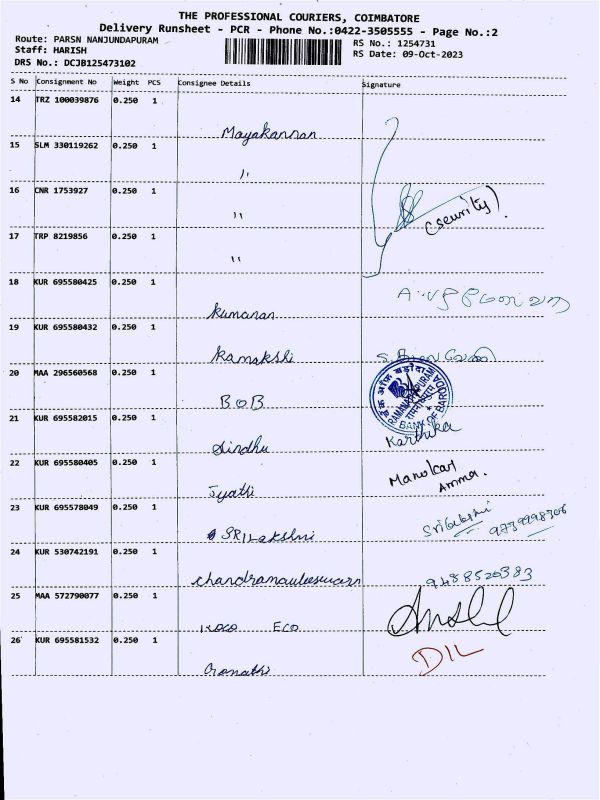 THE PROFESSIONAL COURIERS, COIMBATORE
Delivery Runsheet - PCR - Phone No.:0422-3505555 - Page No.:2
Route: PARSN NANJUNDAPURAM
Staff: HARISH
DRS No.: DCJB125473102
RS No.: 1254731
RS Date: 09-Oct-2023
S No Consignment No Weight PCS Consignee Details Signature
14 TRZ 100039876 0.250 1
Mayakannan
15 SLM 330119262 0.250 1
"
16 CNR 1753927 0.250 1
" (security).
17 TRP 8219856 0.250 1
"
18 KUR 695580425 0.250 1
Kumaran
19 KUR 695580432 0.250 1
Kamakshi
20 MAA 296560568 0.250 1
BOB
BANK OF BARODA
21 KUR 695582015 0.250 1
Sindhu Karthika
22 KUR 695580405 0.250 1
Jyathi Amma.
23 KUR 695578049 0.250 1
SRILakshmi
24 KUR 530742191 0.250 1
9488520383
25 MAA 572790077 0.250 1
ECO
26 KUR 695581532 0.250 1
DIL